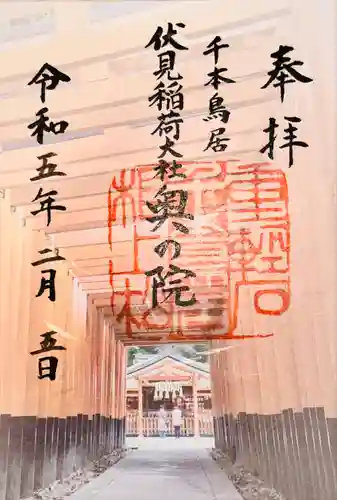 奉拝
千本鳥居
伏見稲荷大社奥の院
令和五年二月五日